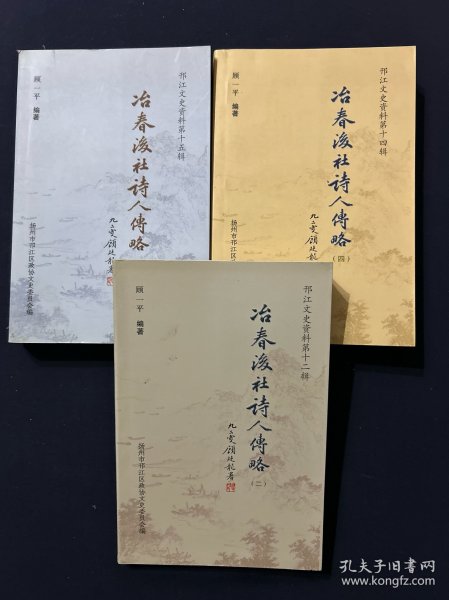 邗江文史资料第十五辑
冶春後社詩人傳略
九二叟顧廷龍署
顾一平 编著
扬州市邗江区政协文史委员会编
邗江文史资料第十四辑
冶春後社詩人傳略
（四）
九二叟顧廷龍
顾一平 编著
扬州市邗江区政协文史
邗江文史资料第十二辑
冶春後社詩人傳略
（二）
九二叟顧廷龍署
顾一平 编著
扬州市邗江区政协文史委员会编
孔夫子旧书网
www.kongfz.com